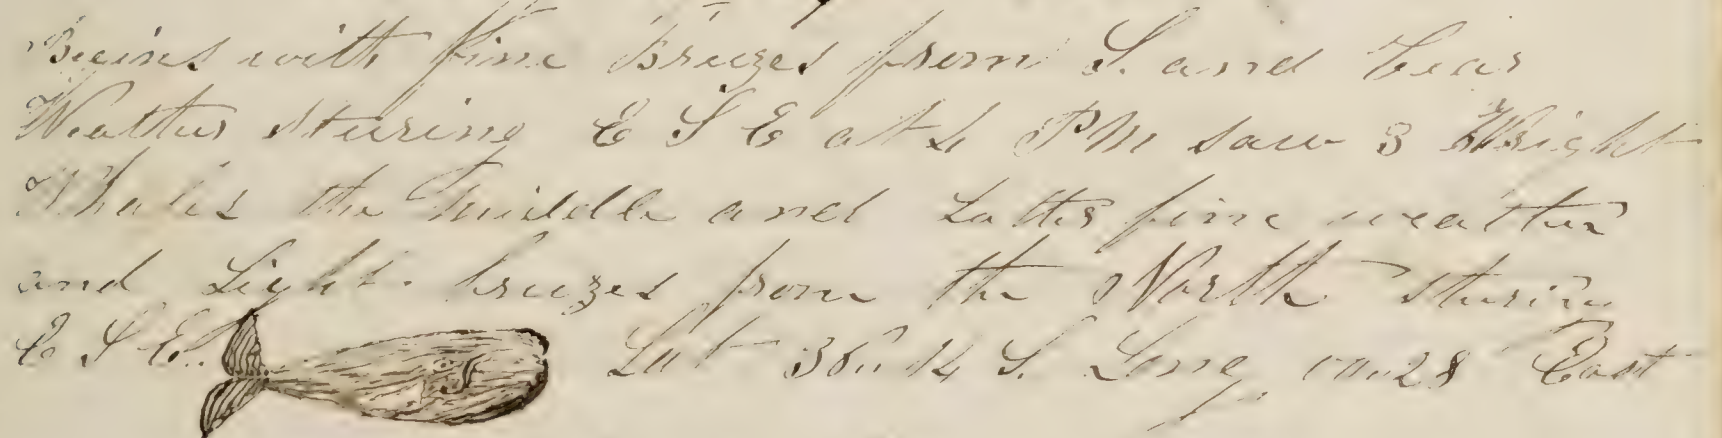 Begins with fine Breezes from S. and Clear
Weather sturing E S E at 4 PM saw 3 Wright
Whales the middle and Latter fine weather
and Light breezes from the North sturing
E S E. Lat 36..14 S. Long 28 East